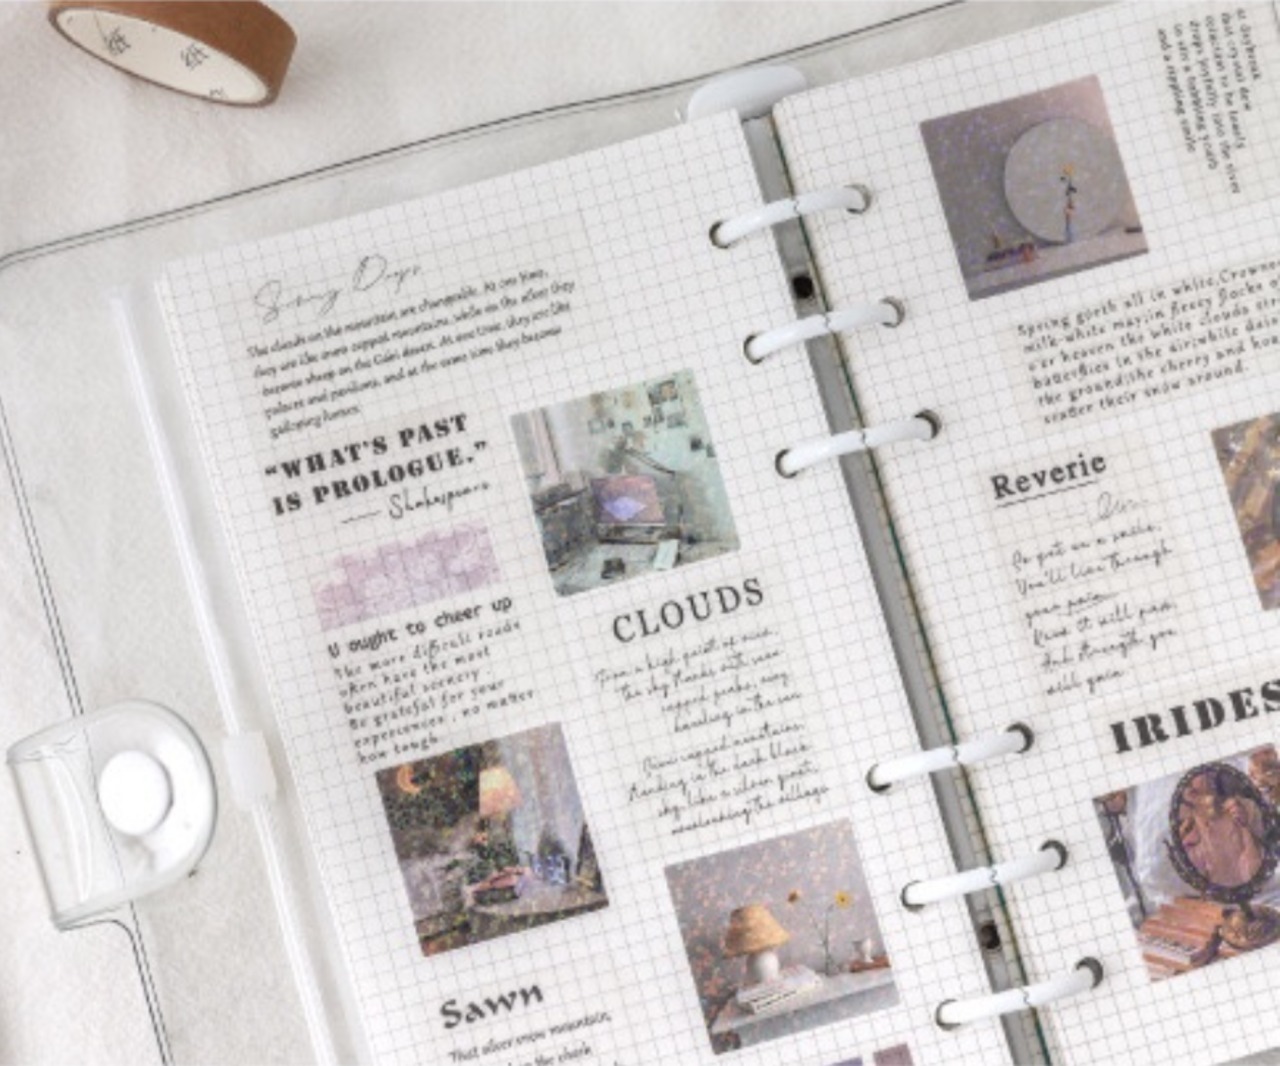 Sunny Days
The clouds on the mountain are changeable. At one time,
they are like snow capped mountains, while on the other they
become sheep on the down. At one time, they are like
palaces and pavilions, and at the same time they become
galloping horses.
“WHAT'S PAST
IS PROLOGUE.”
—— Shakespeare
U ought to cheer up
The more difficult roads
often have the most
beautiful scenery.
Be grateful for your
experiences, no matter
how tough.
CLOUDS
From a high point of view,
the sky thanks with snow
capped peaks,
standing in the sun
Snow capped mountains,
standing in the dark black
sky, like a silver giant,
overlooking the village
Sawn
That silver snow mountain,
in the dark
at daybreak
that crystal dew
drops joyfully into the river
in with a babbling
and a rippling smile
Spring goeth all in white, Crowned
milk-white may: in fleecy flocks o
o'er heaven the white clouds stra
butterflies in the air; white dais
the ground: the cherry and hoa
scatter their snow around.
Reverie
So put on a smile,
You'll live through
your pain.
Know it will pass,
And strength you
will gain
IRIDES